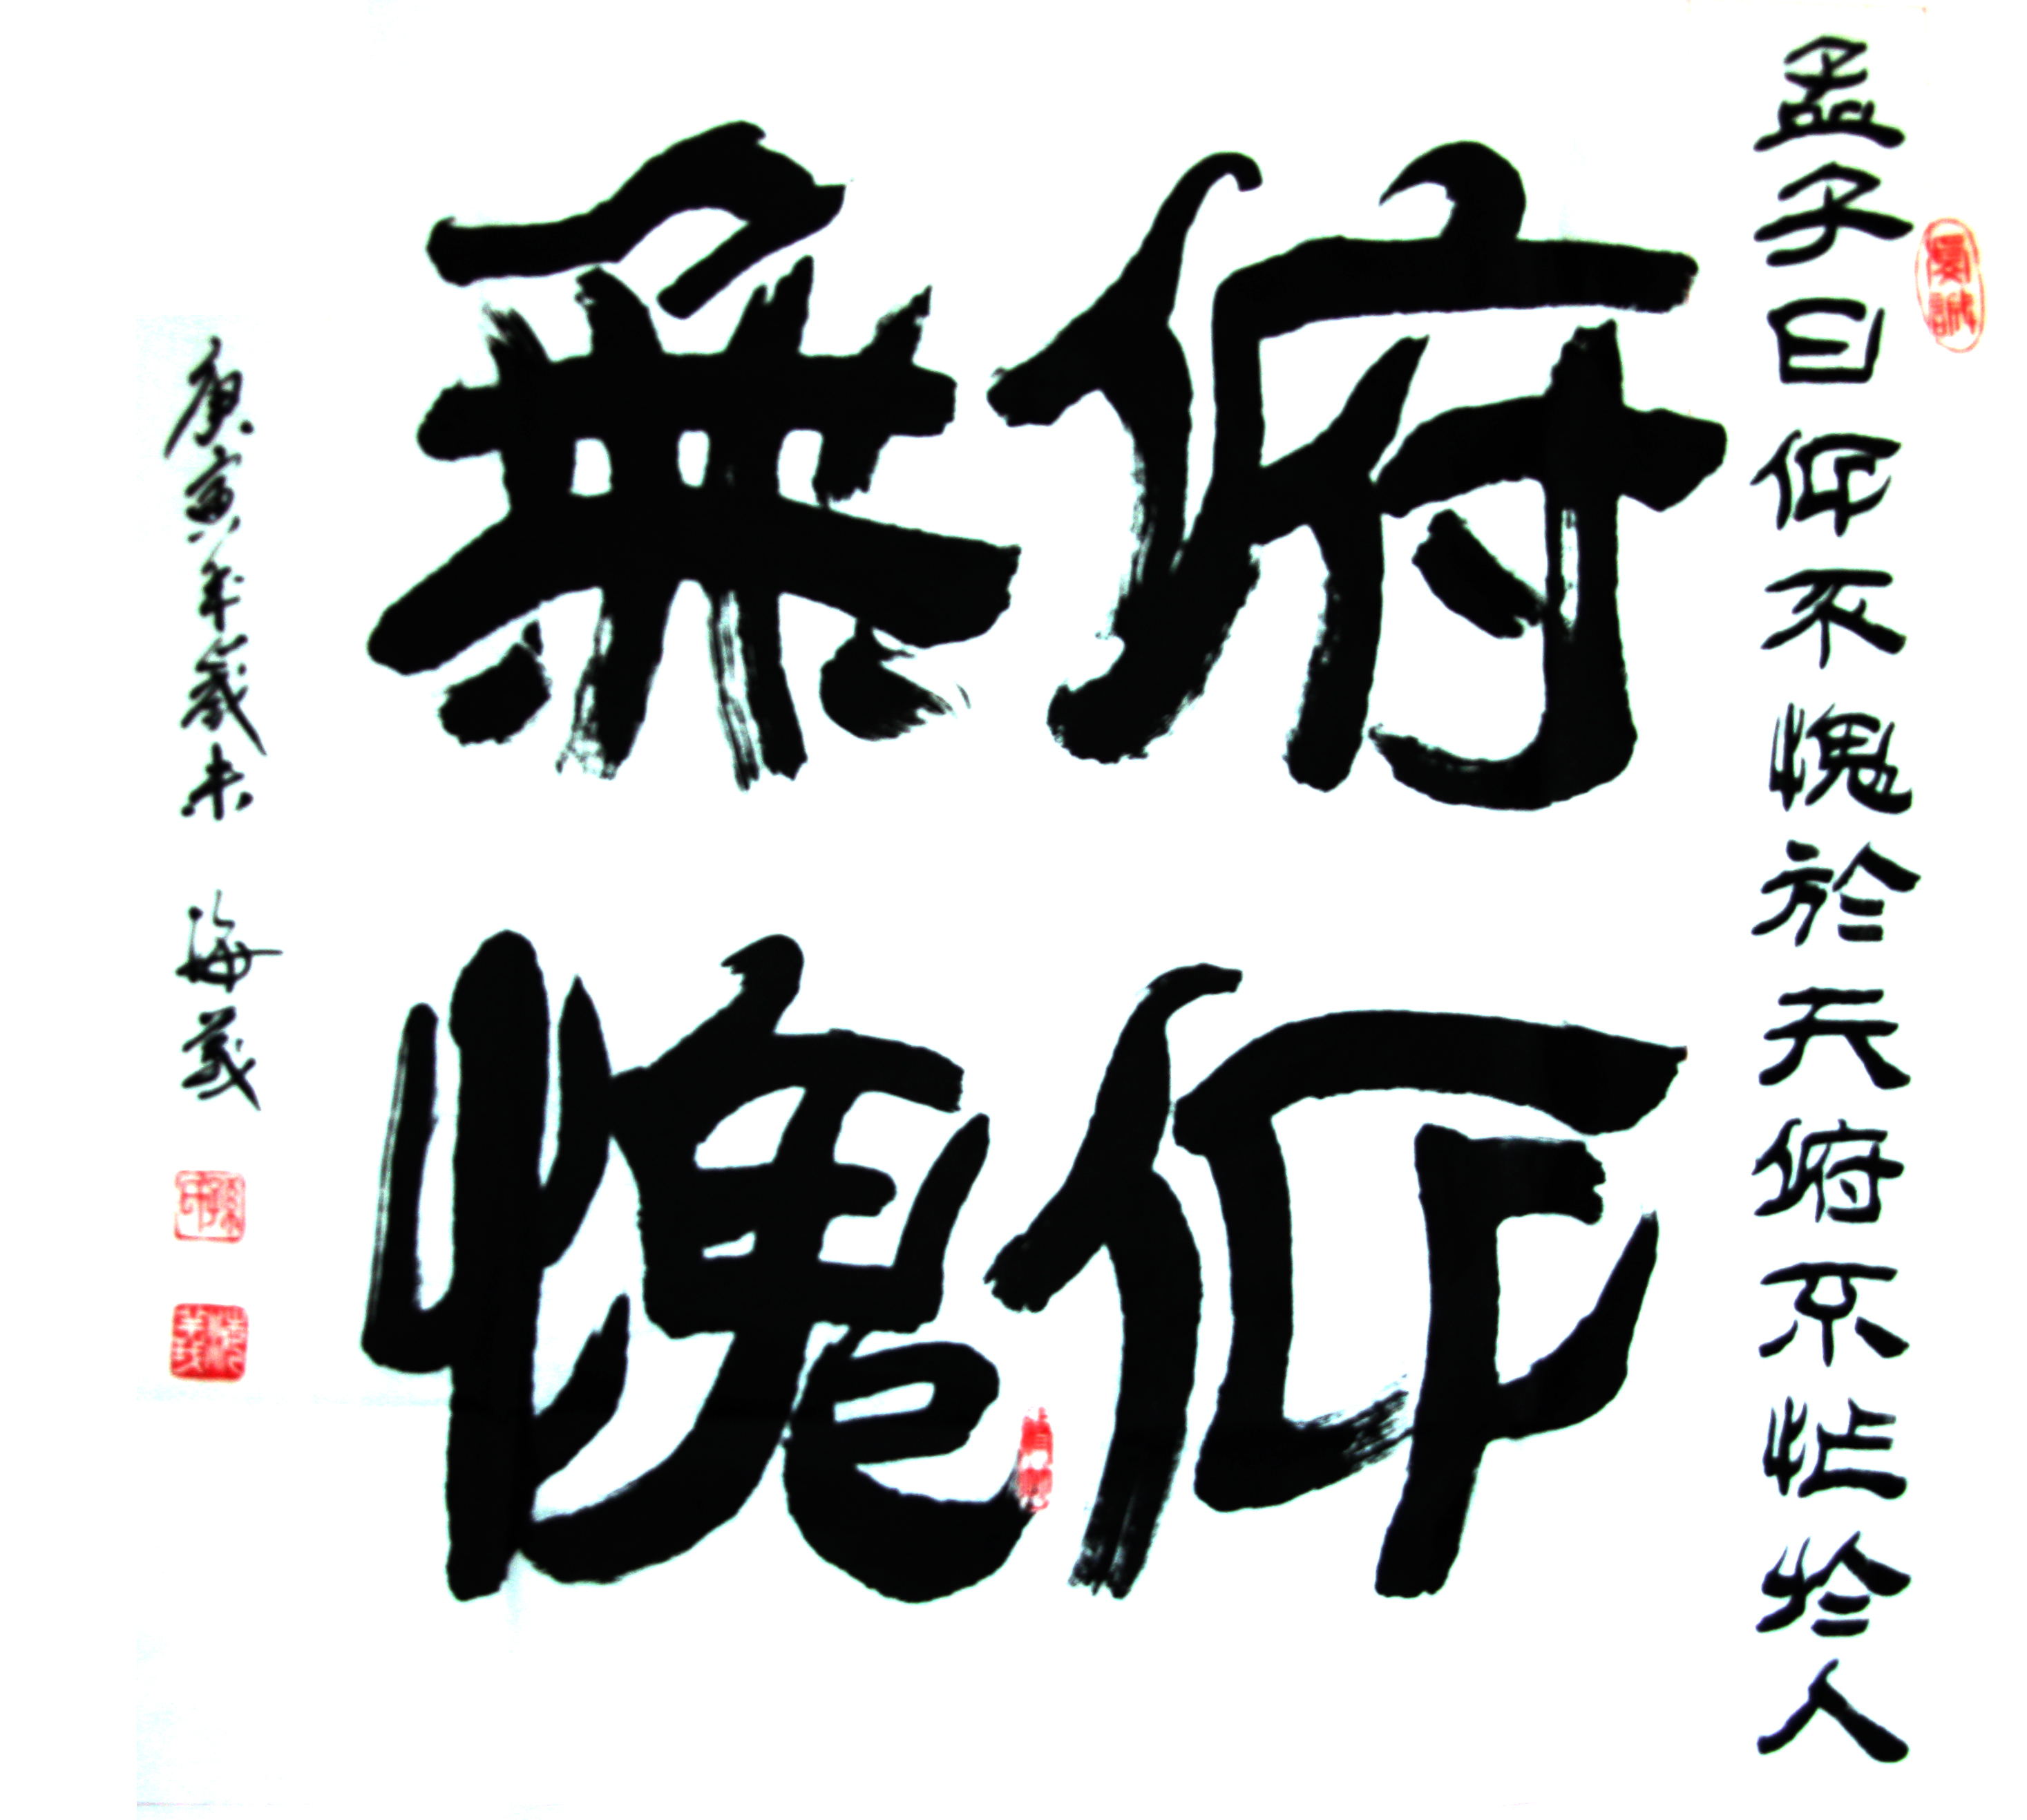 孟子曰仰不愧於天俯不怍於人
俯仰
無愧
庚寅年歲末 海義